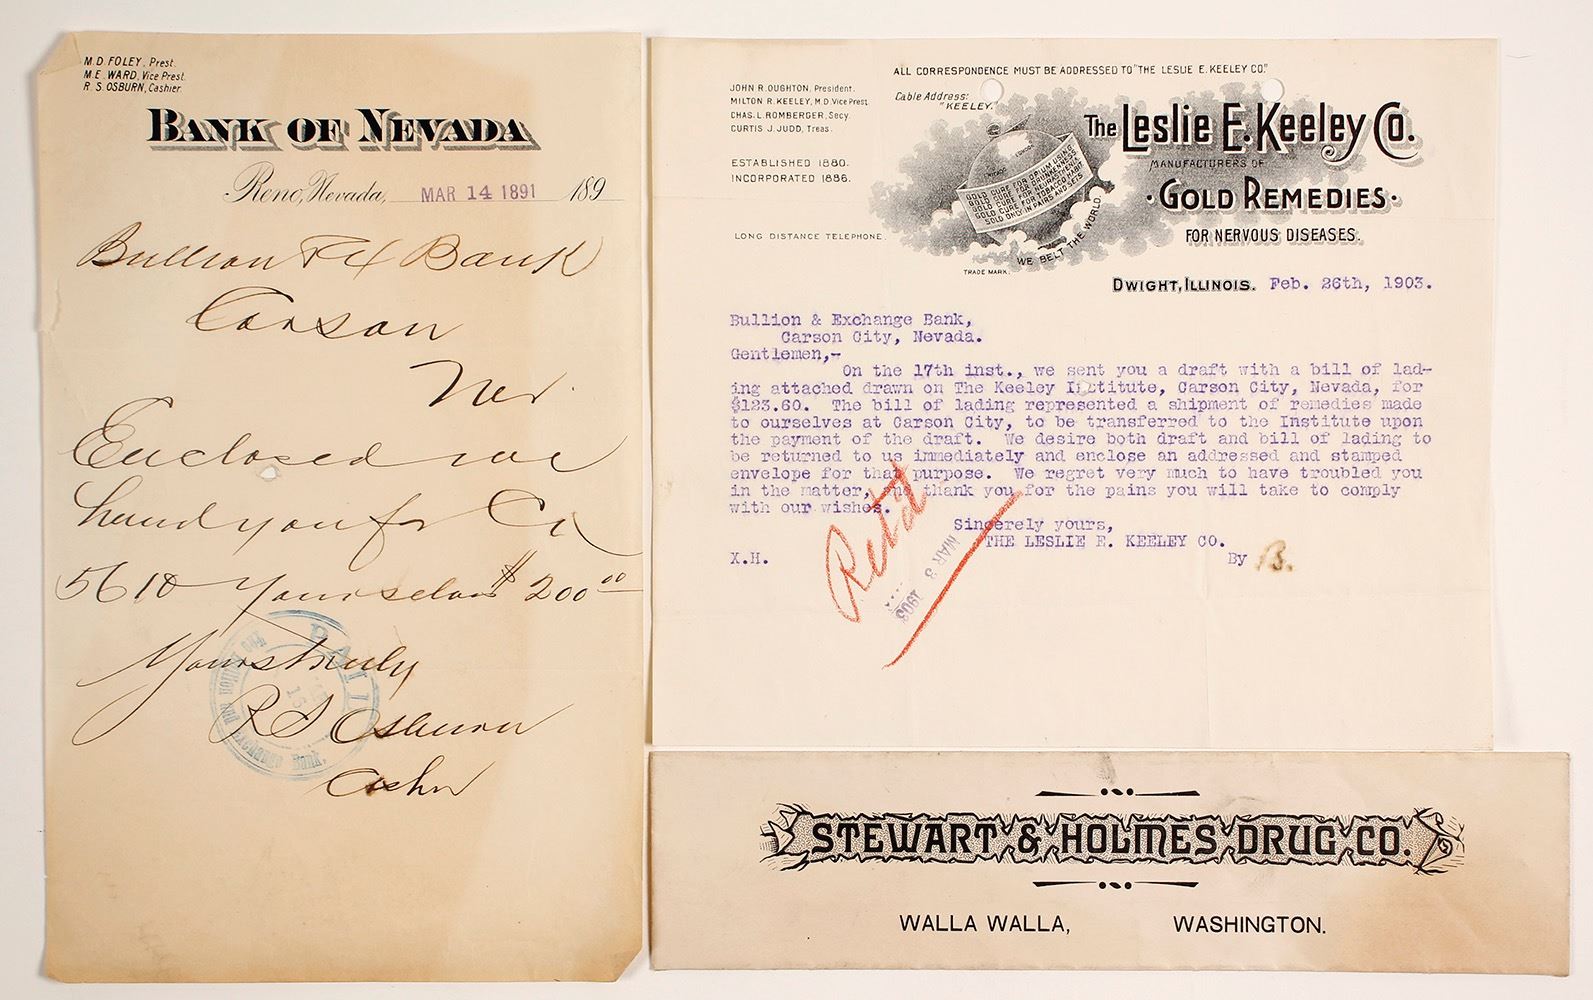 M. D. FOLEY, Prest.
M. E. WARD, Vice Prest.
R. S. OSBURN, Cashier.
BANK OF NEVADA
Reno, Nevada, MAR 14 1891 189
Bullion & Ex Bank
Carson
Nev.
Enclosed we
hand you for
5618 Yourselves $200 00
Yours truly
R S Osburn
Cashr
PAID
Bullion and Exchange Bank.
ALL CORRESPONDENCE MUST BE ADDRESSED TO "THE LESLIE E. KEELEY CO."
JOHN R. OUGHTON, President.
MILTON R. KEELEY, M.D. Vice Prest.
CHAS. L. ROMBERGER, Secy.
CURTIS J. JUDD, Treas.
ESTABLISHED 1880.
INCORPORATED 1886.
LONG DISTANCE TELEPHONE.
Cable Address:
"KEELEY."
The Leslie E. Keeley Co.
MANUFACTURERS OF
·GOLD REMEDIES·
FOR NERVOUS DISEASES.
GOLD CURE FOR OPIUM USING
GOLD CURE FOR DRUNKENNESS
GOLD CURE FOR NEURASTHENIA
GOLD CURE FOR TOBACCO HABIT
SOLD ONLY IN PAIRS AND SETS
WE BELT THE WORLD.
TRADE MARK.
DWIGHT, ILLINOIS. Feb. 26th, 1903.
Bullion & Exchange Bank,
Carson City, Nevada.
Gentlemen,-
On the 17th inst., we sent you a draft with a bill of lad-
ing attached drawn on The Keeley Institute, Carson City, Nevada, for
$123.60. The bill of lading represented a shipment of remedies made
to ourselves at Carson City, to be transferred to the Institute upon
the payment of the draft. We desire both draft and bill of lading to
be returned to us immediately and enclose an addressed and stamped
envelope for that purpose. We regret very much to have troubled you
in the matter, and thank you for the pains you will take to comply
with our wishes.
Sincerely yours,
THE LESLIE E. KEELEY CO.
X.H. By B.
Ret'd
MAR 3 1903
STEWART & HOLMES DRUG CO.
WALLA WALLA, WASHINGTON.